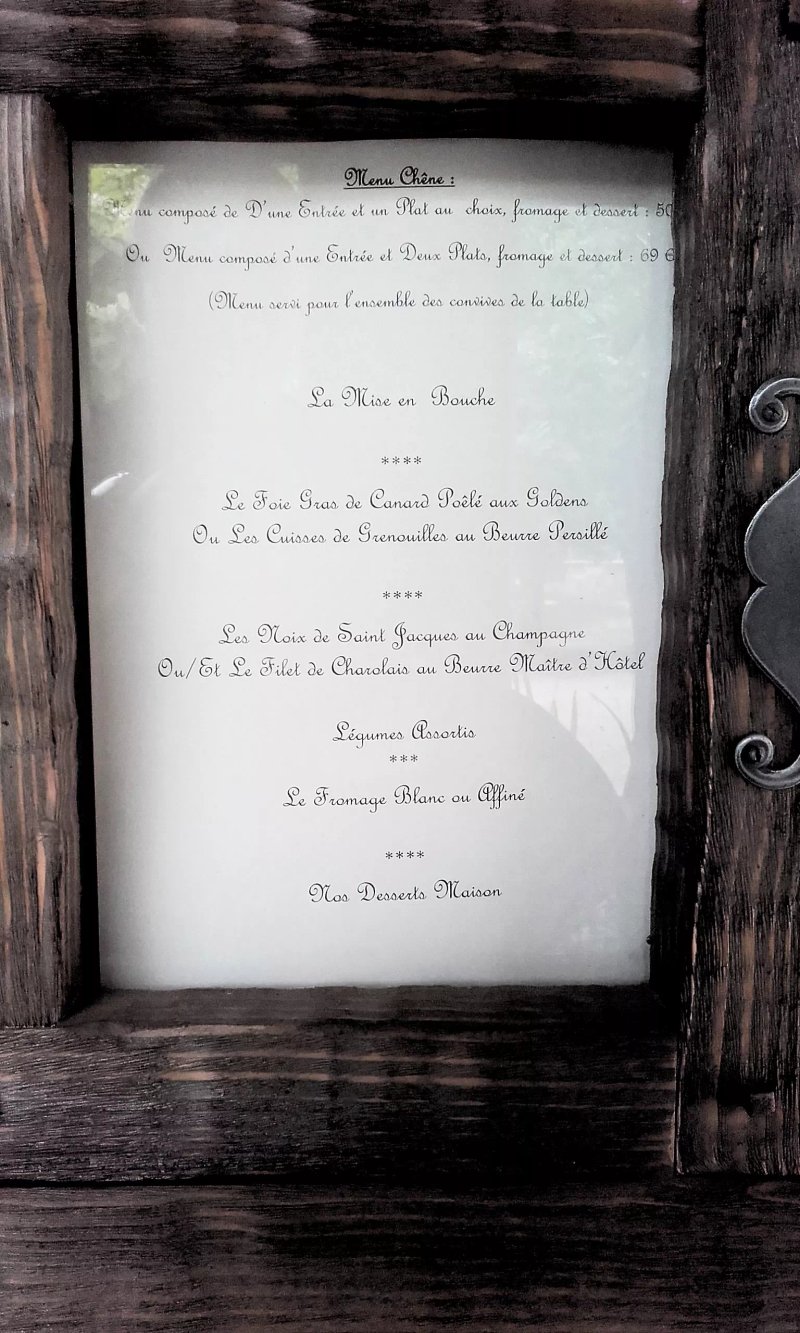 Menu Chêne :
Menu composé de D'une Entrée et un Plat au choix, fromage et dessert : 50
Ou Menu composé d'une Entrée et Deux Plats, fromage et dessert : 69 €
(Menu servi pour l'ensemble des convives de la table)
La Mise en Bouche
****
Le Foie Gras de Canard Poêlé aux Goldens
Ou Les Cuisses de Grenouilles au Beurre Persillé
****
Les Noix de Saint Jacques au Champagne
Ou/Et Le Filet de Charolais au Beurre Maître d'Hôtel
Légumes Assortis
***
Le Fromage Blanc ou Affiné
****
Nos Desserts Maison